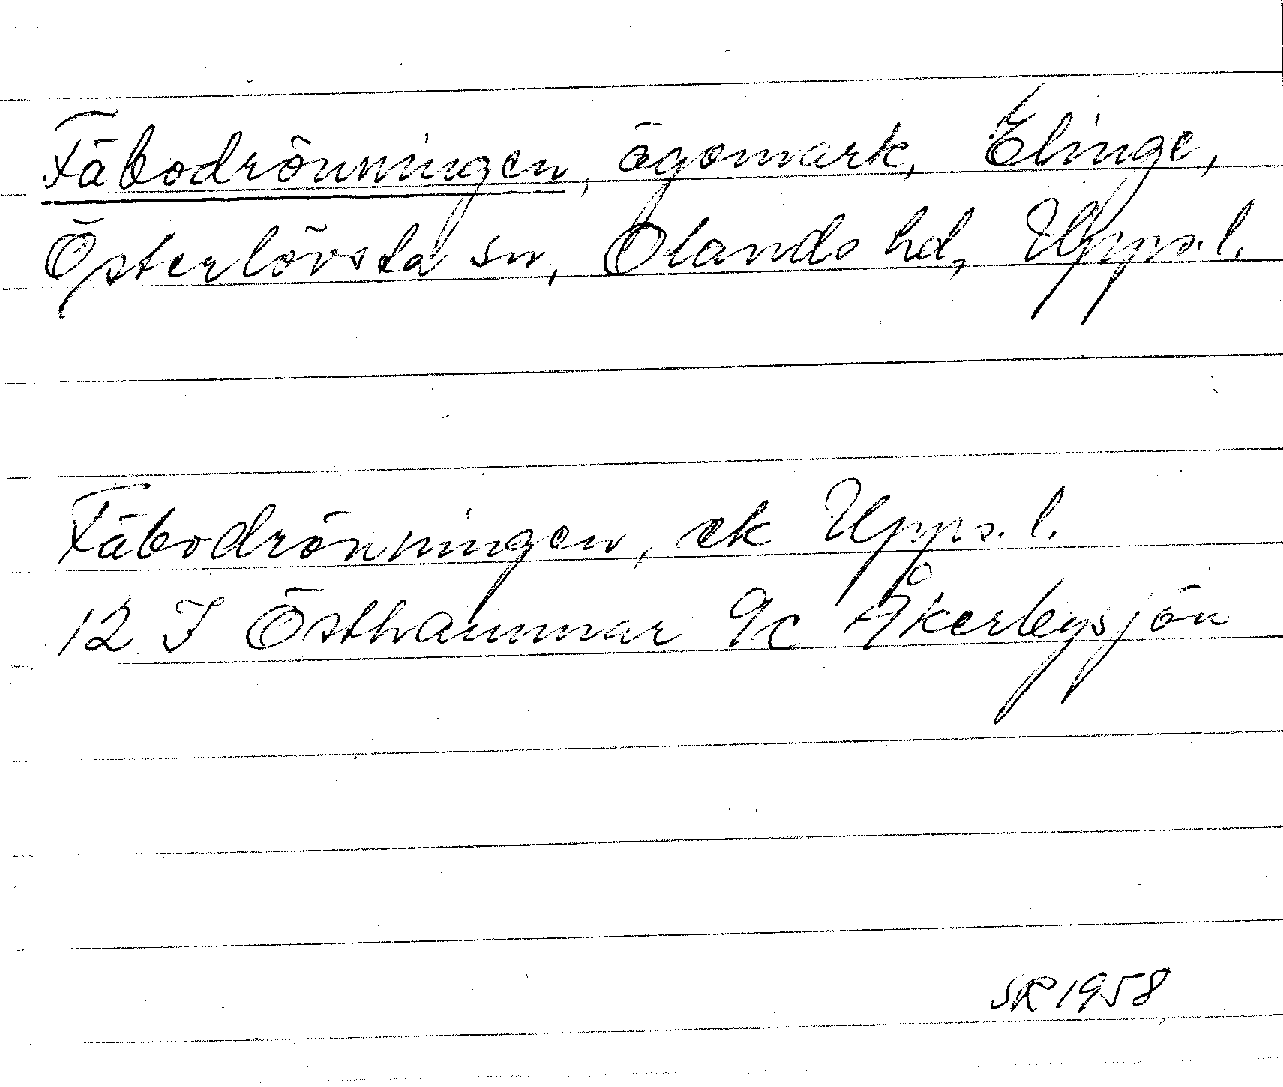 Fäbodrönningen, ägomark, Elinge,
Österlövsta sn, Olands hd, Upps. l.
Fäbodrönningen, ek Upps. l.
12 I Östhammar 9c Åkerbysjön
SR 1958